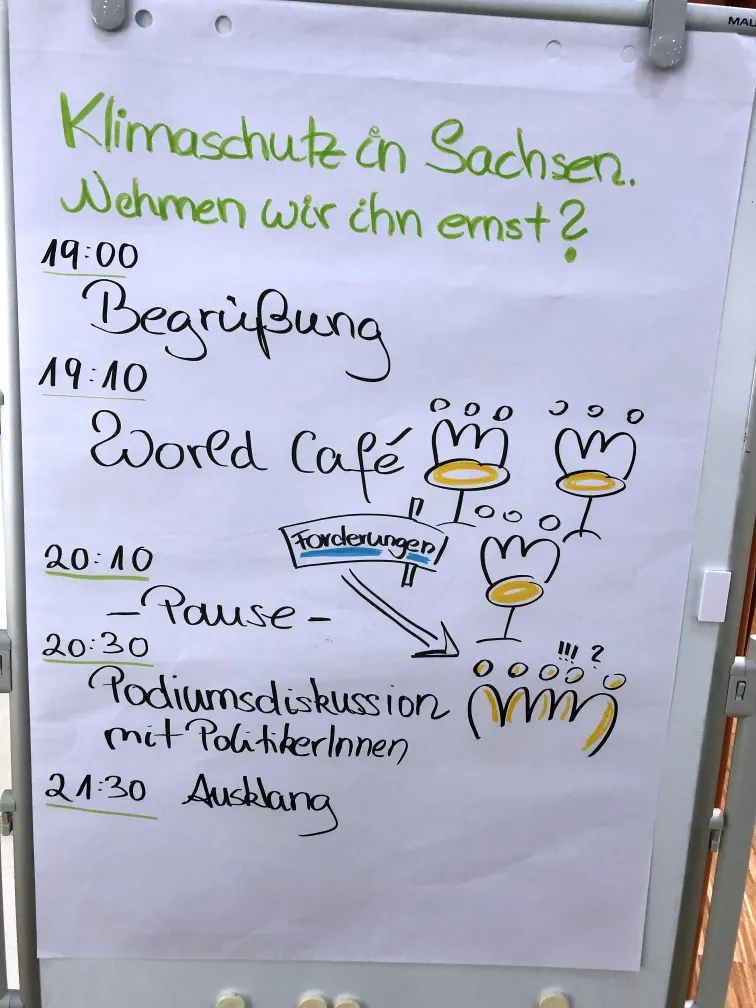 MAU
Klimaschutz in Sachsen.
Nehmen wir ihn ernst?
19:00
Begrüßung
19:10
World Café
Forderungen
20:10
- Pause -
20:30
!!! ?
Podiumsdiskussion
mit PolitikerInnen
21:30 Ausklang